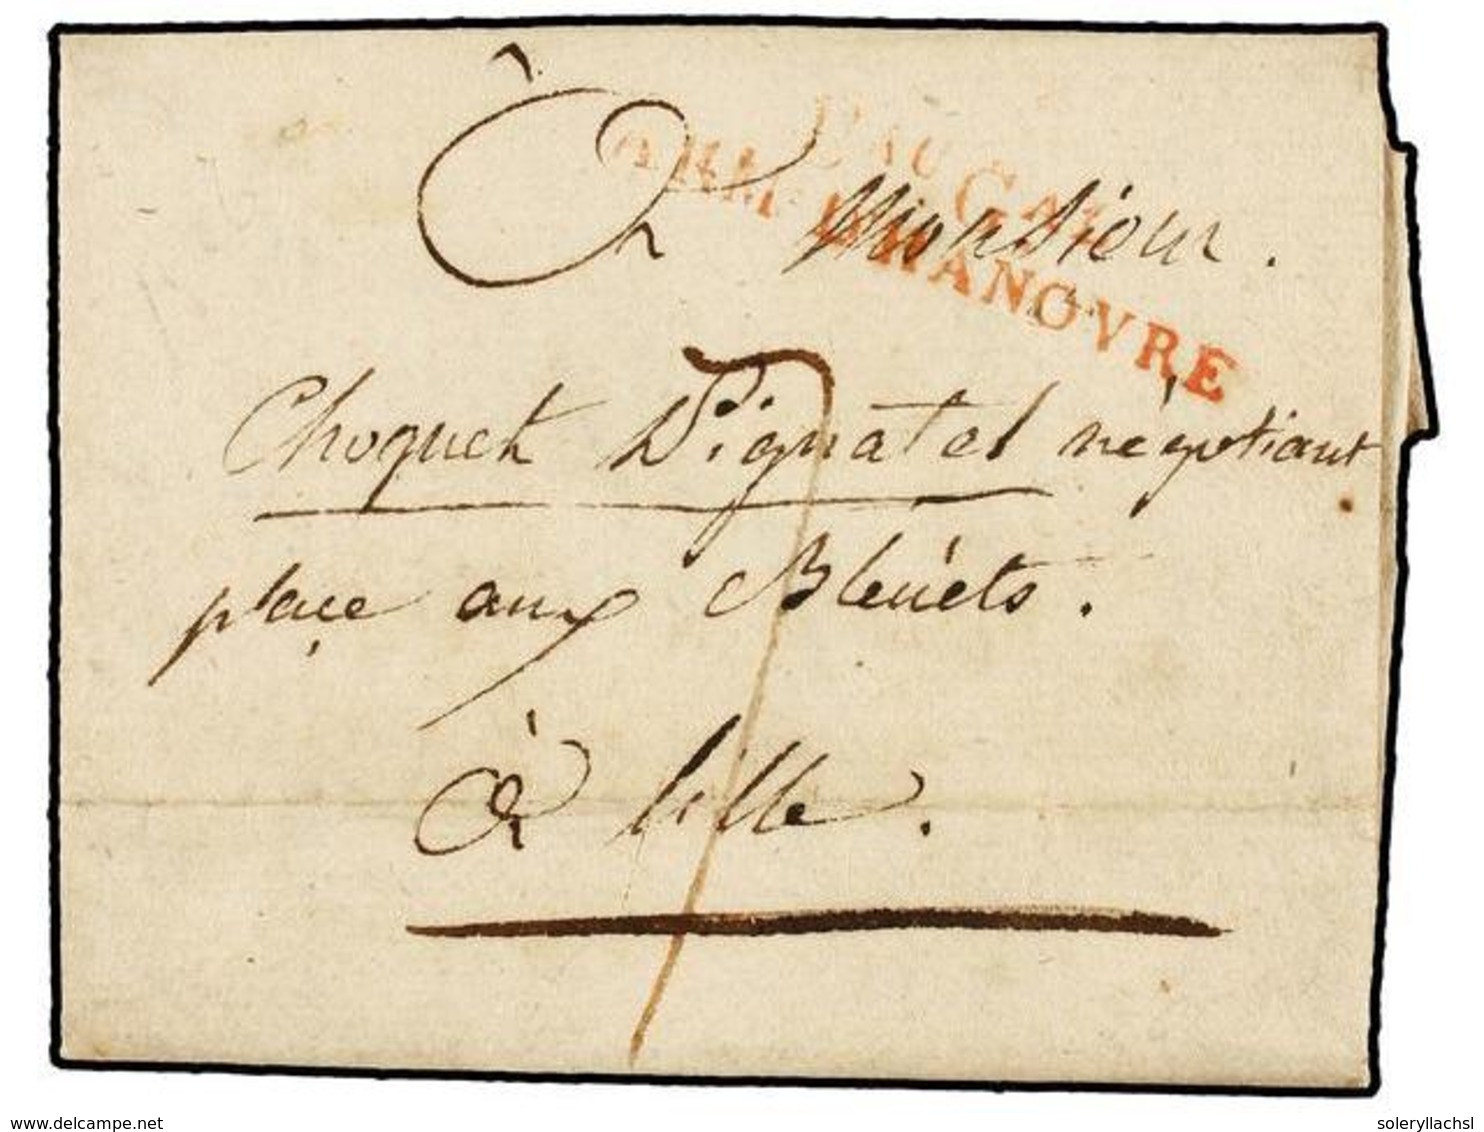 À Monsieur.
Bau Gal
ARM. D'HANOVRE
Choquet Pignatel négotiant
place aux Bleuets.
à lille.
7
www.delcampe.net
soleryllachsl